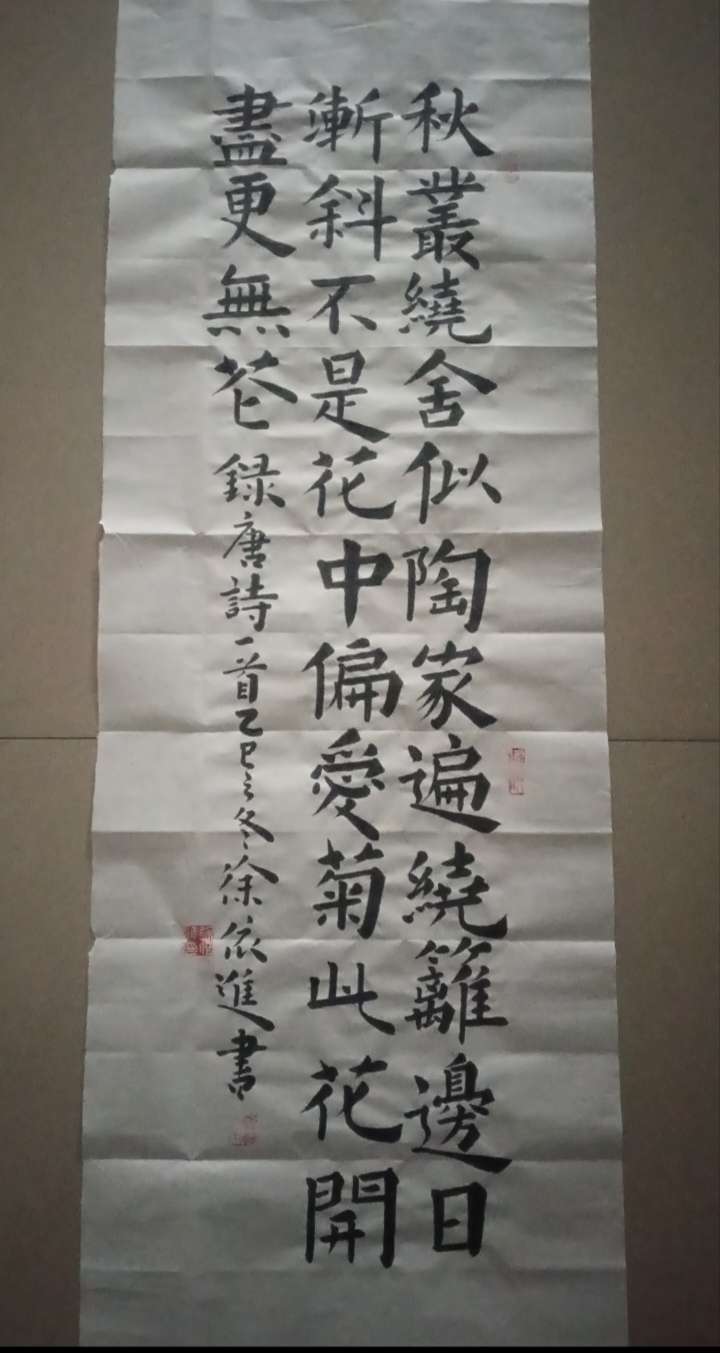 秋叢繞舍似陶家遍繞籬邊日
漸斜不是花中偏愛菊此花開
盡更無花錄唐詩一首乙巳之冬徐依進書